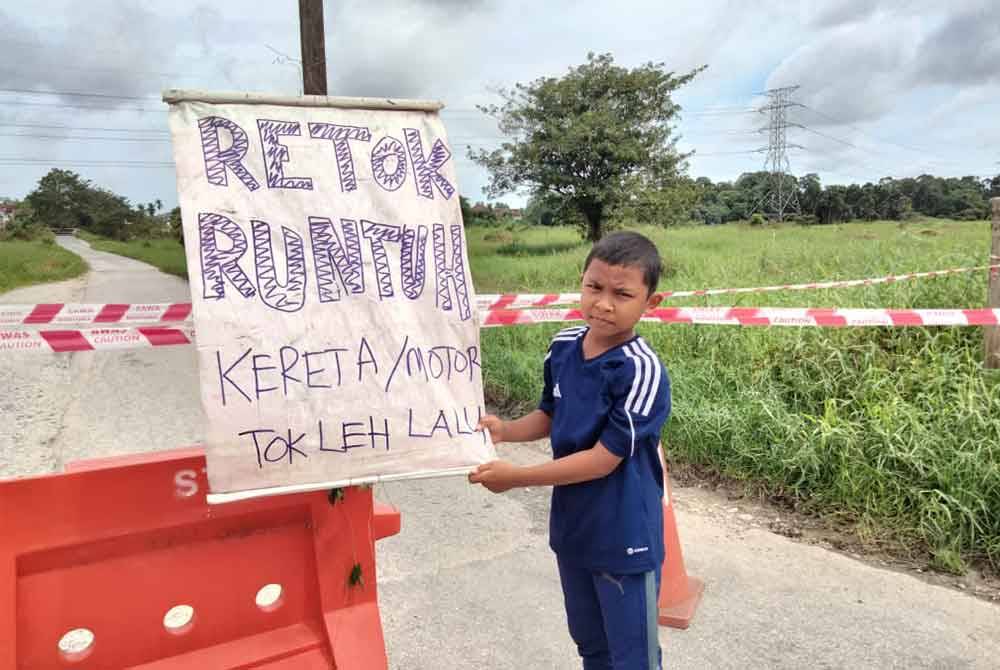 RETOK
RUNTUH
KERETA/MOTOR
TOK LEH LALU
AWAS
CAUTION
CAUTION
ST